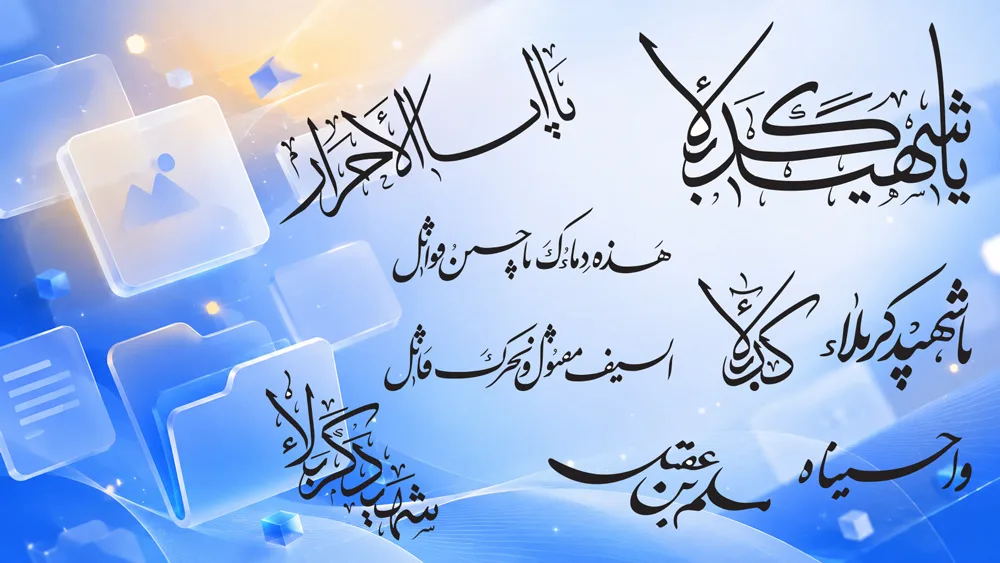 يا شهيد كربلاء
يا أبا الأحرار
هذه دماءك يا حسين فواثل
يا شهيد كربلاء
كربلاء
السيف مقتول ونحرك قاتل
شهيد كربلاء
وا حسيناه
مسلم بن عقيل